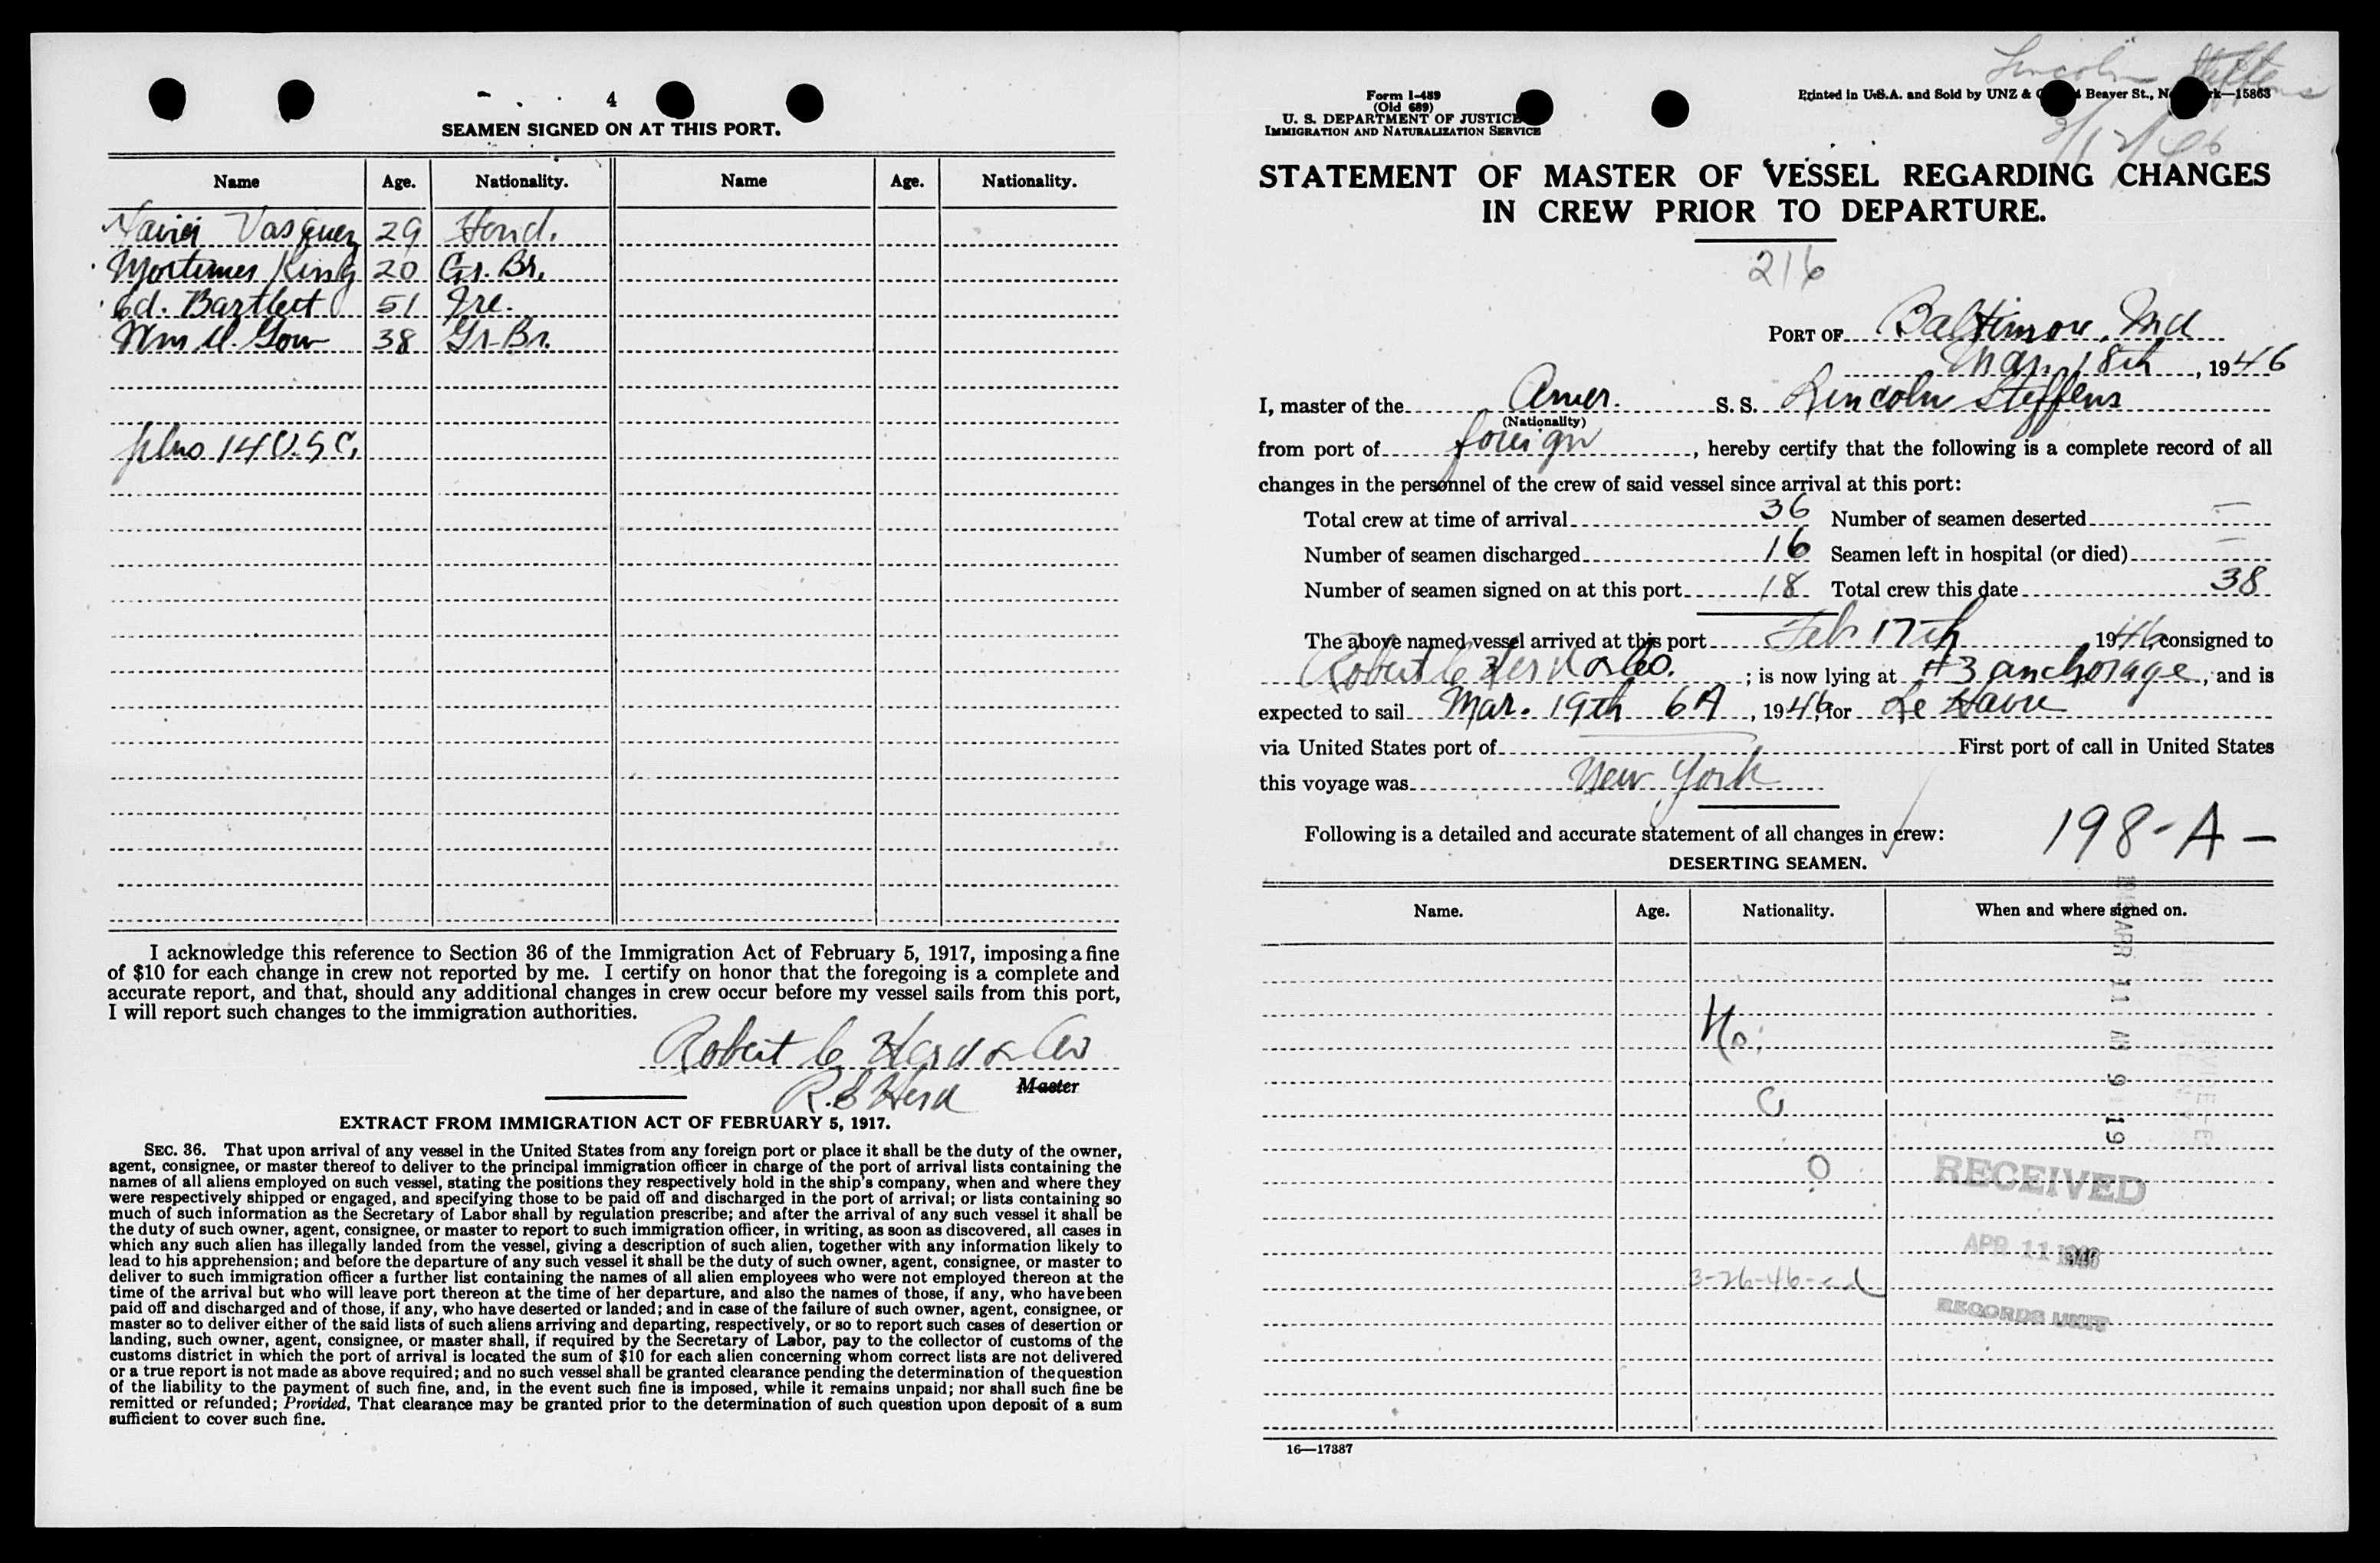 4
SEAMEN SIGNED ON AT THIS PORT.
Name Age. Nationality. Name Age. Nationality.
Xavier Vasquez 29 Hond.
Mortimer King 20 Gr. Br.
Ed. Bartlett 51 Ire.
Wm Gow 38 Gr-Br.
plus 14 U.S.C.
I acknowledge this reference to Section 36 of the Immigration Act of February 5, 1917, imposing a fine
of $10 for each change in crew not reported by me. I certify on honor that the foregoing is a complete and
accurate report, and that, should any additional changes in crew occur before my vessel sails from this port,
I will report such changes to the immigration authorities.
Robert C Herd & Co
R.C Herd Master
EXTRACT FROM IMMIGRATION ACT OF FEBRUARY 5, 1917.
SEC. 36. That upon arrival of any vessel in the United States from any foreign port or place it shall be the duty of the owner,
agent, consignee, or master thereof to deliver to the principal immigration officer in charge of the port of arrival lists containing the
names of all aliens employed on such vessel, stating the positions they respectively hold in the ship's company, when and where they
were respectively shipped or engaged, and specifying those to be paid off and discharged in the port of arrival; or lists containing so
much of such information as the Secretary of Labor shall by regulation prescribe; and after the arrival of any such vessel it shall be
the duty of such owner, agent, consignee, or master to report to such immigration officer, in writing, as soon as discovered, all cases in
which any such alien has illegally landed from the vessel, giving a description of such alien, together with any information likely to
lead to his apprehension; and before the departure of any such vessel it shall be the duty of such owner, agent, consignee, or master to
deliver to such immigration officer a further list containing the names of all alien employees who were not employed thereon at the
time of the arrival but who will leave port thereon at the time of her departure, and also the names of those, if any, who have been
paid off and discharged and of those, if any, who have deserted or landed; and in case of the failure of such owner, agent, consignee, or
master so to deliver either of the said lists of such aliens arriving and departing, respectively, or so to report such cases of desertion or
landing, such owner, agent, consignee, or master shall, if required by the Secretary of Labor, pay to the collector of customs of the
customs district in which the port of arrival is located the sum of $10 for each alien concerning whom correct lists are not delivered
or a true report is not made as above required; and no such vessel shall be granted clearance pending the determination of the question
of the liability to the payment of such fine, and, in the event such fine is imposed, while it remains unpaid; nor shall such fine be
remitted or refunded; Provided, That clearance may be granted prior to the determination of such question upon deposit of a sum
sufficient to cover such fine.
Lincoln Steffens
Form I-489
(Old 689)
U. S. DEPARTMENT OF JUSTICE
IMMIGRATION AND NATURALIZATION SERVICE
Printed in U.S.A. and Sold by UNZ & Beaver St., —15863
STATEMENT OF MASTER OF VESSEL REGARDING CHANGES
IN CREW PRIOR TO DEPARTURE.
216
PORT OF Baltimore, Md
Mar. 18th, 1946
I, master of the Amer. S. S. Lincoln Steffens
(Nationality)
from port of foreign, hereby certify that the following is a complete record of all
changes in the personnel of the crew of said vessel since arrival at this port:
Total crew at time of arrival 36 Number of seamen deserted —
Number of seamen discharged 16 Seamen left in hospital (or died) —
Number of seamen signed on at this port 18 Total crew this date 38
The above named vessel arrived at this port Feb 17th 1946, consigned to
Robert C Herd & Co. ; is now lying at #3 anchorage, and is
expected to sail Mar. 19th 6A, 1946, for Le Havre
via United States port of First port of call in United States
this voyage was New York
Following is a detailed and accurate statement of all changes in crew:
198-A-
DESERTING SEAMEN.
Name. Age. Nationality. When and where signed on.
APR 11 AM 9 19
RECEIVED
APR 11 1946
3-26-46
RECORDS UNIT
16—17387